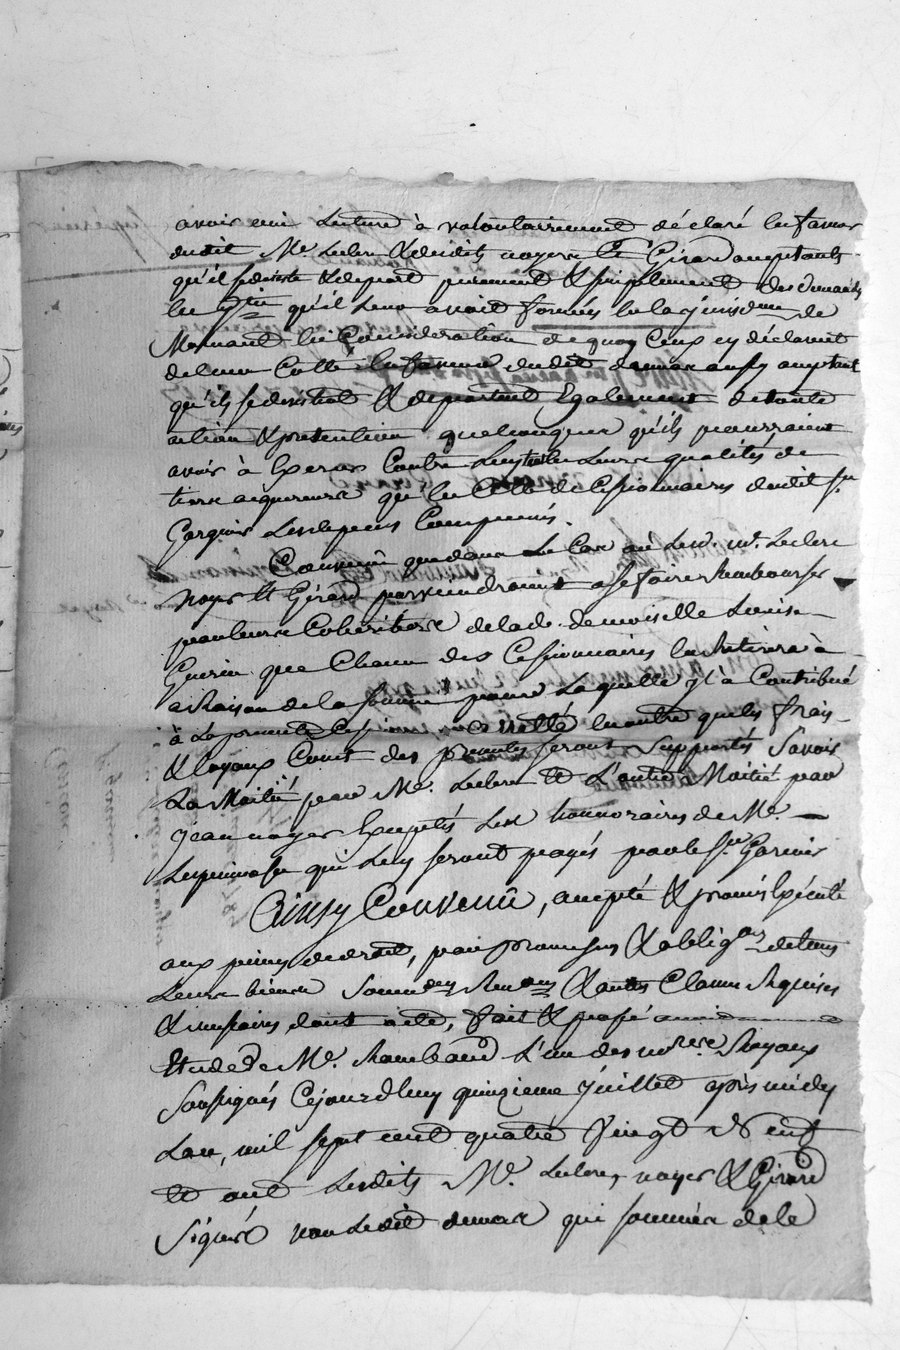 avoir eüe Lecture à volontairement déclaré en faveur
dudit Me. Leclerc & desdits noyer & Girard acceptants
qu'il se desiste & depart purement & simplement des demandes
en qu'il Leur avoit formées en la jurisdon de
Mornant en Consideration de quoy Ceux cy déclarent
de leur Cotté en faveur dudit demare aussy acceptant
qu'ils se desistent & departent Egalement de toute
action & pretention quelconque qu'ils pourroient
avoir à Exercer Contre Luy en Leurs qualités de
tiers acquereurs qu'en Celle de Cessionnaires dudit sr.
Garnier Les depens Compensés.
Convenû que dans Le Cas où Les. Mr. Leclerc
noyer & Gérard parviendroient a se faire Rembourser
par leurs Coheritiers de lade. demoiselle Louise
Guerin que Chacun des Cessionnaires En Retirera à
a Raison de la somme pour Laquelle il à Contribué
à La presente Cession en outre que les frais
& loyaux Couts des presentes seront Supportés Savoir
La Moitié par Me. Leclerc & L'autre Moitié par
Jean noyer Exceptés Les honnoraires de Me.
Lespinasse qui Luy seront payés par le sr. Garnier
Ainsy Convenû, accepté & promis Exécuté
aux peines de droit, par promesses & obligaons de tous
Leurs biens Soumons Renons & autres Clauses Requises
& necessaires dont acte, fait & passé
Etude de Me. Rambaud L'un des nores. Royaux
Soussignés Cejourdhuy quinzieme Juillet après midy
L'an, mil sept cent quatre vingt & neuf
& ont Lesdits Me. Leclerc, noyer & Girard
Signé non Ledit demare qui sommé de le